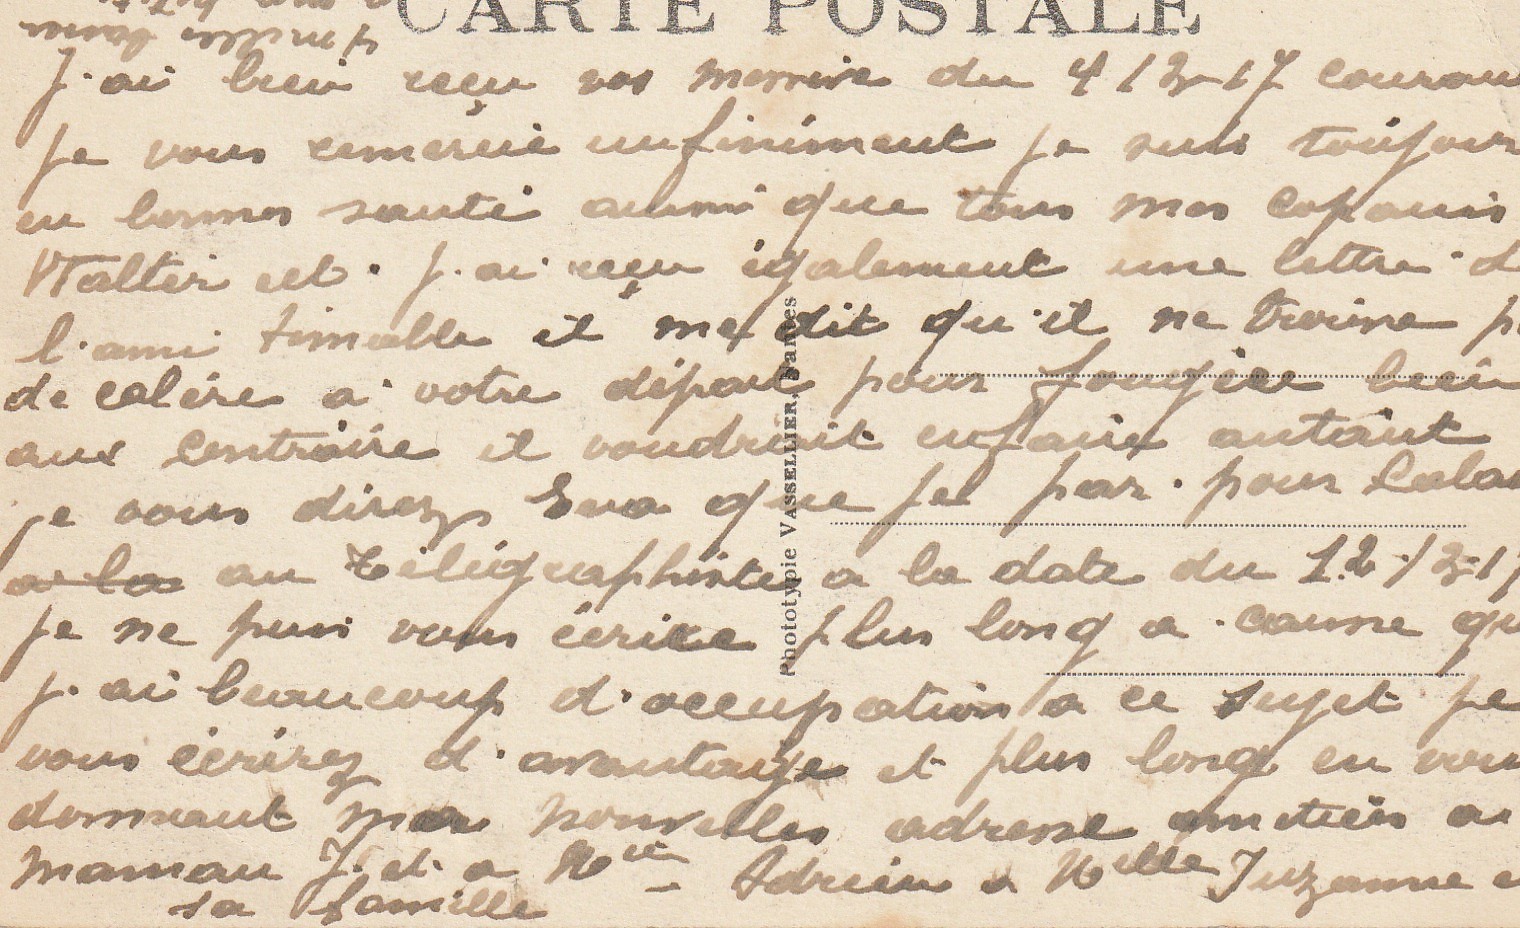 CARTE POSTALE
J'ai bien reçu vos du 4/12-17 couran
Je vous remercie infiniment je suis toujour
en bonnes santé aussi que tous mes copains
Walter ect. J'ai reçu également une lettre d
l'ami il me dit qu'il ne trouve p
de colère a votre départ pour fougère bien
aux contraire il voudrait enfaire autant
je vous direz que je par. pour
a la au Télégraphiste a la date du 12-12-17
Je ne puis vous écrire plus long a cause qu
j'ai beaucoup d'occupation a ce sujet je
vous écrirez d'avantage et plus long en vou
donnant ma nouvelles adresse amitiés a
maman J. et a Adrien a Suzanne e
sa famille
Phototypie VASSELLIER, Nantes